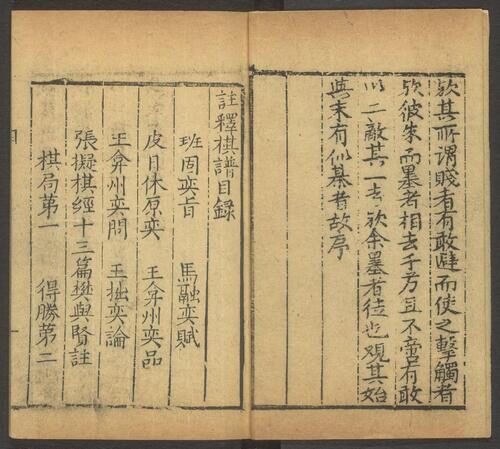 欤其所谓賤者有敢避而使之擊觸者
欤彼朱而墨者相去千方且不啻有敢
以二敵其一去欤余墨者徒也观其始
與末有似綦者故序
註釋棋譜目録
班固奕旨 馬融奕賦
皮日休原奕 王弇州奕品
王弇州奕問 王拙奕論
張擬棋經十三篇樊與賢註
棋局第一 得勝第二